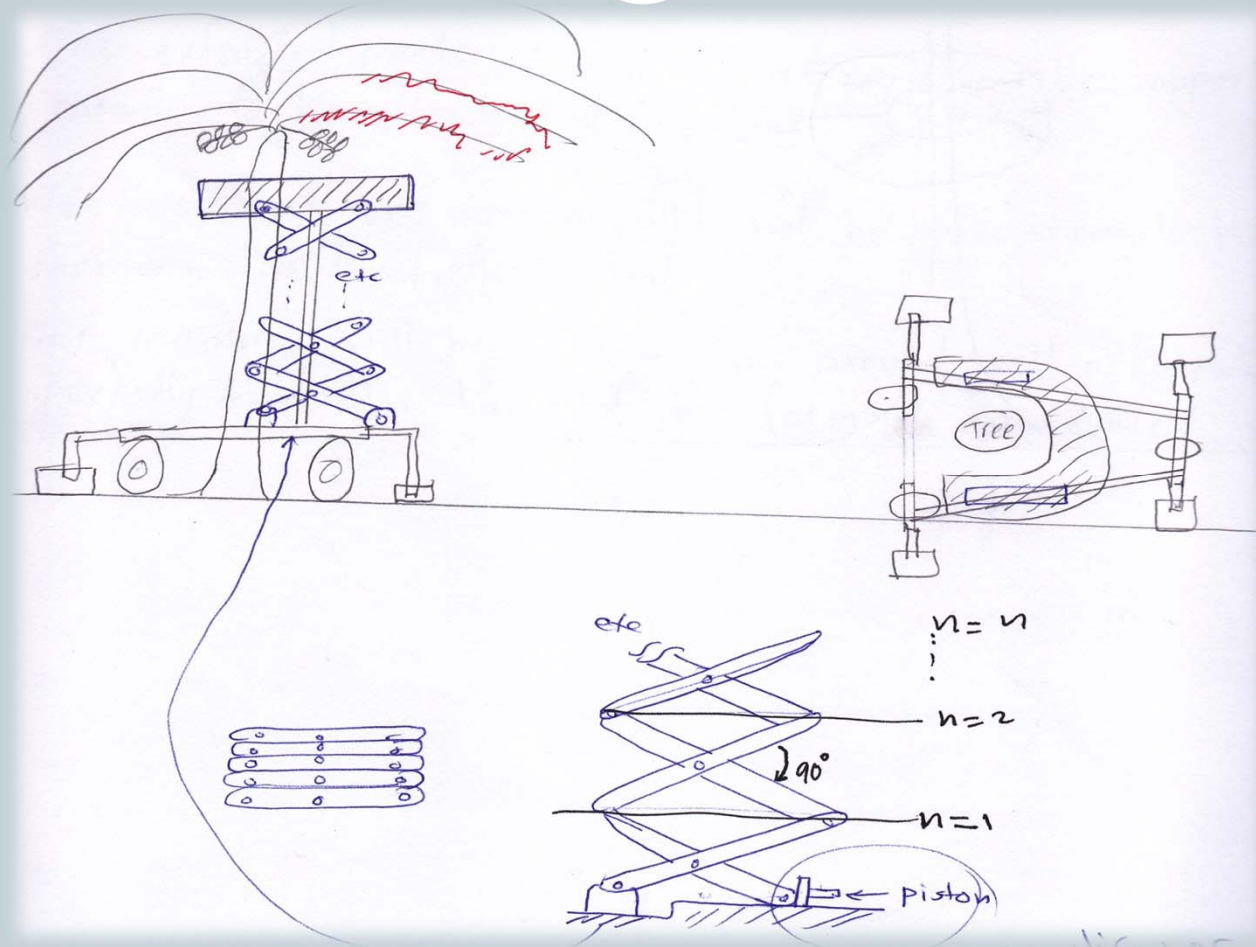 etc
Tree
etc
n = n
n = 2
90°
n = 1
piston